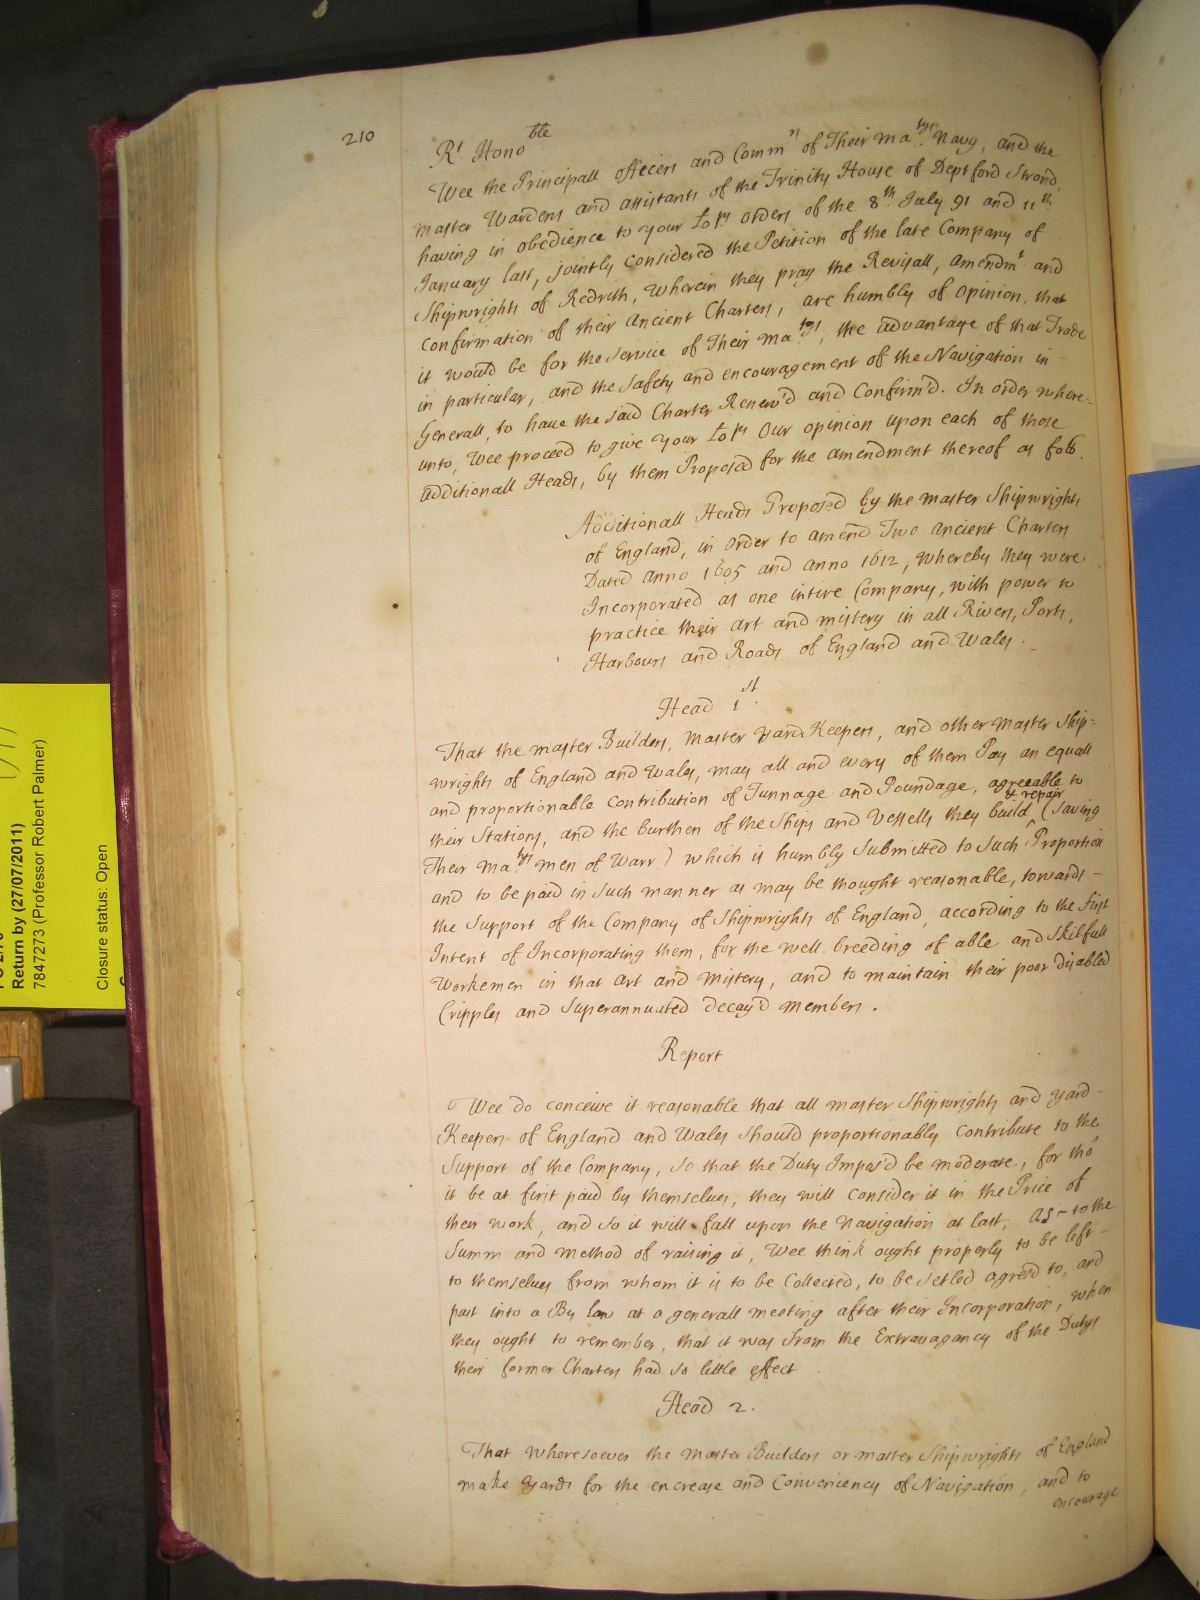 210
Rt Honoble
Wee the Principall officers and Commrs of Their Matys Navy, and the
Master Wardens and assistants of the Trinity House of Deptford Strond,
having in obedience to your Lops orders of the 8th July 91 and 11th
January last, jointly considered the Petition of the late Company of
Shipwrights of Redrith, Wherein they pray the Revisall, Amendmt and
confirmation of their Ancient Charters, are humbly of opinion, that
it would be for the service of Their Matys, the advantage of that Trade
in particular, and the safety and encouragement of the Navigation in -
Generall, to have the said Charter Renew'd and Confirm'd. In order where=
unto, Wee proceed to give your Lops Our opinion upon each of those
additionall Heads, by them Proposed for the amendment thereof as follo.
Additionall Heads Proposed by the master Shipwrights
of England, in order to amend Two ancient Charters
Dated anno 1605 and anno 1612, whereby they were
Incorporated as one intire Company, with power to
practice their art and mistery in all Rivers, Ports,
Harbours and Roads of England and Wales.
Head 1st.
That the master Builders, Master Yard Keepers, and other Master Ship=
wrights of England and Wales, may all and every of them Pay an equall
and proportionable contribution of Tunnage and Poundage, agreeable to
their Stations, and the burthen of the Ships and Vessells they build ^& repair (saving
Their Matys men of Warr) which is humbly submitted to such Proportion
and to be paid in such manner as may be thought reasonable, towards -
the Support of the Company of Shipwrights of England, according to the first
Intent of Incorporating them, for the well breeding of able and Skilfull
Workemen in that Art and Mistery, and to maintain their poor disabled
Cripples and Superannuated decay'd members.
Report
Wee do conceive it reasonable that all master Shipwrights and Yard-
Keepers of England and Wales should proportionably contribute to the
Support of the Company, so that the Duty Impos'd be moderate, for tho'
it be at first paid by themselves, they will consider it in the Price of
their work, and so it will fall upon the Navigation at last, as - to the
Summ and method of raising it, Wee think ought properly to be left -
to themselves from whom it is to be Collected, to be setled agreed to, and
past into a By law at a generall meeting after their Incorporation, when
they ought to remember, that it was from the Extravagancy of the Dutys
their former Charters had so little effect.
Head 2.
That wheresoever the Master Builders or master Shipwrights of England
make Yards for the encrease and Conveniency of Navigation, and to
encourage
Return by (27/07/2011)
7847273 (Professor Robert Palmer)
Closure status: Open